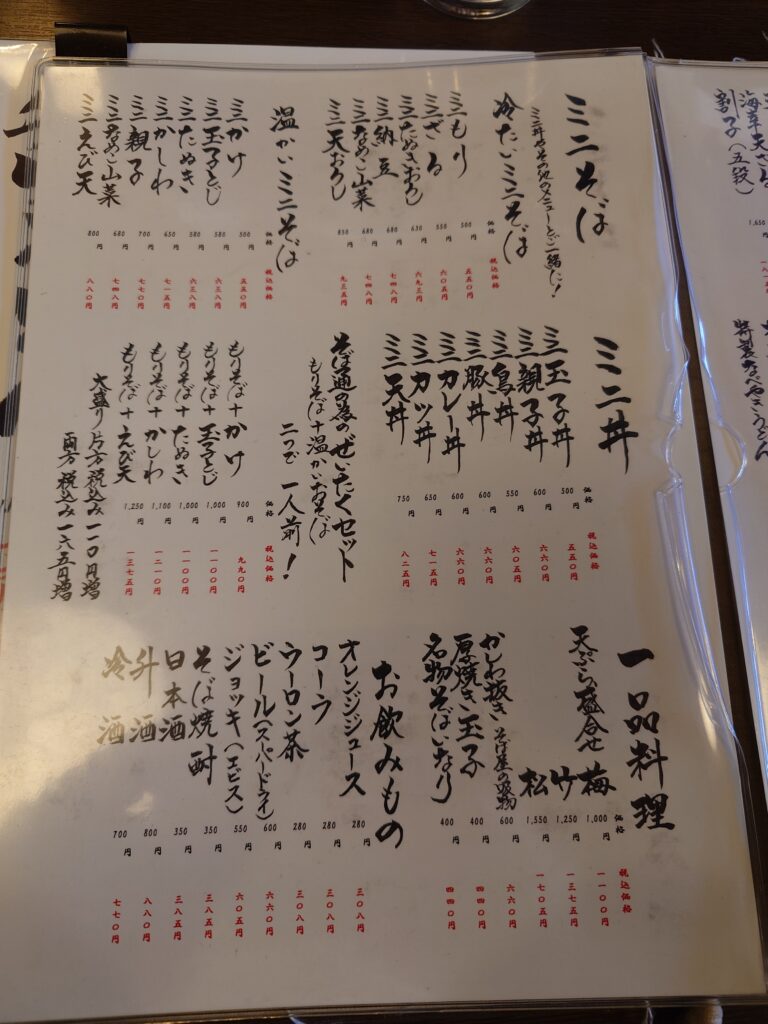 海草天ざる
割子(五段)
1,650円
特製なべやきうどん
ミニそば
ミニ丼やその他のメニューとご一緒に!
冷たいミニそば 価格 税込価格
ミニもり 500円 五五〇円
ミニざる 550円 六〇五円
ミニたぬきおろし 630円 六九三円
ミニ納豆 680円 七四八円
ミニなめこ山菜 680円 七四八円
ミニ天おろし 850円 九三五円
温かいミニそば 価格 税込価格
ミニかけ 500円 五五〇円
ミニ玉子とじ 580円 六三八円
ミニたぬき 580円 六三八円
ミニかしわ 650円 七一五円
ミニ親子 700円 七七〇円
ミニなめこ山菜 680円 七四八円
ミニえび天 800円 八八〇円
ミニ丼
価格 税込価格
ミニ玉子丼 500円 五五〇円
ミニ親子丼 600円 六六〇円
ミニ鳥丼 550円 六〇五円
ミニ豚丼 600円 六六〇円
ミニカレー丼 600円 六六〇円
ミニカツ丼 650円 七一五円
ミニ天丼 750円 八二五円
そば通の為のぜいたくセット
もりそば+温かいおそば
二つで一人前!
価格 税込価格
もりそば+かけ 900円 九九〇円
もりそば+玉子とじ 1,000円 一一〇〇円
もりそば+たぬき 1,000円 一一〇〇円
もりそば+かしわ 1,100円 一二一〇円
もりそば+えび天 1,250円 一三七五円
大盛り 片方 税込み 一一〇円増
両方 税込み 一六五円増
一品料理
価格 税込価格
天ぷら盛合せ 梅 1,000円 一一〇〇円
竹 1,250円 一三七五円
松 1,550円 一七〇五円
かしわ抜き そば屋の吸物 600円 六六〇円
厚焼き玉子 400円 四四〇円
名物そばいなり 400円 四四〇円
お飲みもの
オレンジジュース 280円 三〇八円
コーラ 280円 三〇八円
ウーロン茶 280円 三〇八円
ビール(スーパードライ) 600円 六六〇円
ジョッキ(エビス) 550円 六〇五円
そば焼酎 350円 三八五円
日本酒 350円 三八五円
升酒 800円 八八〇円
冷酒 700円 七七〇円